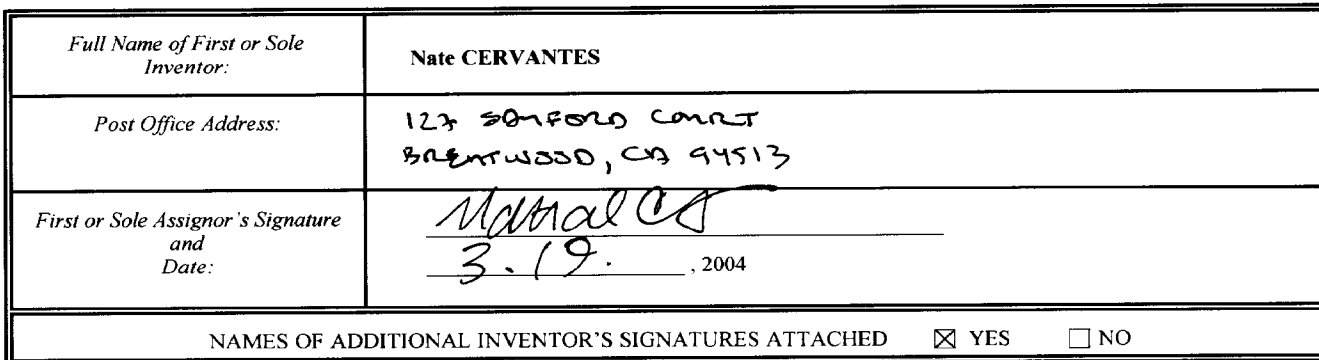 Full Name of First or Sole
Inventor:
Nate CERVANTES
Post Office Address:
127 SANFORD COURT
BRENTWOOD, CA 94513
First or Sole Assignor's Signature
and
Date:
3.19. , 2004
NAMES OF ADDITIONAL INVENTOR'S SIGNATURES ATTACHED ☒ YES ☐ NO